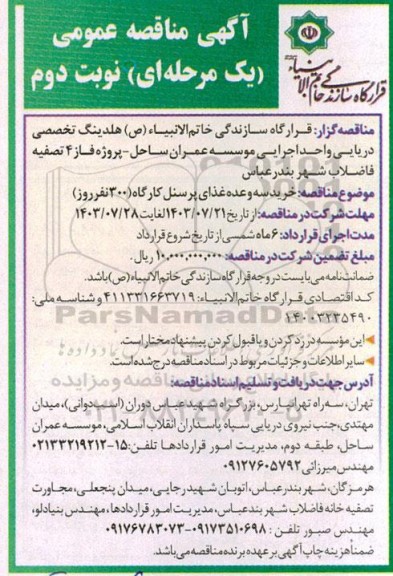 آگهی مناقصه عمومی
(یک مرحله‌ای) نوبت دوم
قرارگاه سازندگی خاتم الانبیاء
مناقصه‌گزار: قرارگاه سازندگی خاتم‌الانبیاء (ص) هلدینگ تخصصی
دریایی واحد اجرایی موسسه عمران ساحل-پروژه فاز ۴ تصفیه
فاضلاب شهر بندرعباس
موضوع مناقصه: خرید سه وعده غذای پرسنل کارگاه (۳۰۰نفر روز)
مهلت شرکت در مناقصه: از تاریخ ۱۴۰۳/۰۷/۲۱ لغایت ۱۴۰۳/۰۷/۲۸
مدت اجرای قرارداد: ۶ ماه شمسی از تاریخ شروع قرارداد
مبلغ تضمین شرکت در مناقصه: ۱۰،۰۰۰،۰۰۰،۰۰۰ ریال.
ضمانتنامه می‌بایست در وجه قرارگاه سازندگی خاتم‌الانبیاء (ص) باشد.
کد اقتصادی قرارگاه خاتم‌الانبیاء: ۴۱۱۳۳۱۶۶۳۷۱۹ و شناسه ملی:
۱۴۰۰۳۲۳۵۴۹۰
◄این موسسه در رد کردن و یا قبول کردن پیشنهاد مختار است.
◄سایر اطلاعات و جزئیات مربوط در اسناد مناقصه درج شده است.
آدرس جهت دریافت و تسلیم اسناد مناقصه:
تهران، سه‌راه تهرانپارس، بزرگراه شهید عباس دوران (استخدوانی)، میدان
مهتدی، جنب نیروی دریایی سپاه پاسداران انقلاب اسلامی، موسسه عمران
ساحل، طبقه دوم، مدیریت امور قراردادها تلفن: ۱۵-۰۲۱۳۳۲۱۹۲۱۲
مهندس میرزائی ۰۹۱۲۷۶۰۵۷۹۲
هرمزگان، شهر بندرعباس، اتوبان شهید رجایی، میدان پنجعلی، مجاورت
تصفیه خانه فاضلاب شهر بندرعباس، مدیریت امور قراردادها، مهندس بنیادلو،
مهندس صبور تلفن : ۰۹۱۷۳۵۱۰۶۹۸-۰۹۱۷۶۷۸۳۰۷۳
ضمناً هزینه چاپ آگهی بر عهده برنده مناقصه می‌باشد.
ParsNamadData